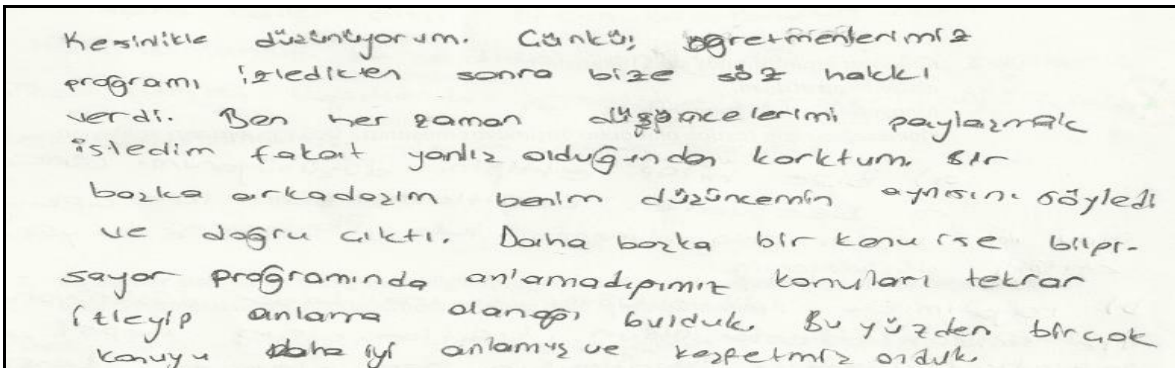 Kesinlikle düşünüyorum. Çünkü, öğretmenlerimiz
programı izledikten sonra bize söz hakkı
verdi. Ben her zaman düşüncelerimi paylaşmak
istedim fakat yanlış olduğundan korktum. Bir
başka arkadaşım benim düşüncemin aynısını söyledi
ve doğru çıktı. Daha başka bir konu ise bilgi-
sayar programında anlamadığımız konuları tekrar
izleyip anlama olanağı bulduk. Bu yüzden birçok
konuyu daha iyi anlamış ve keşfetmiş olduk.